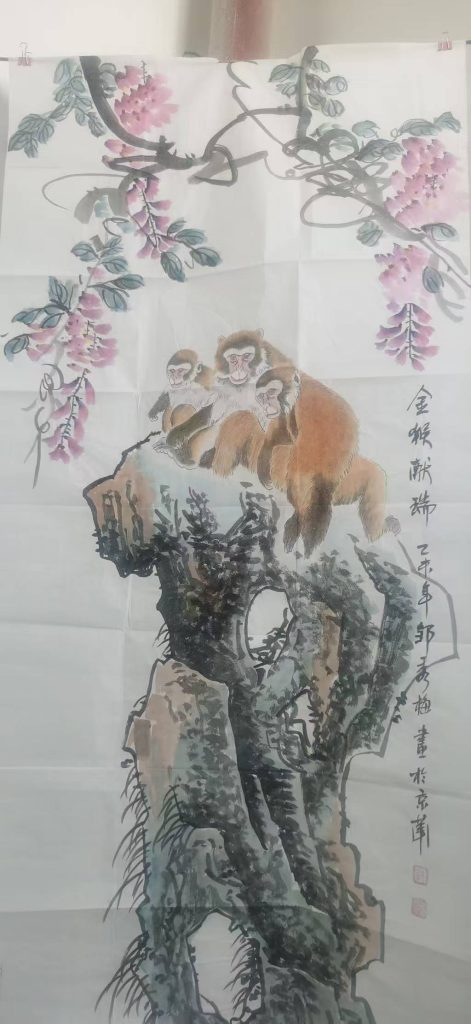 金猴献瑞 乙未年邹秀梅画於京華